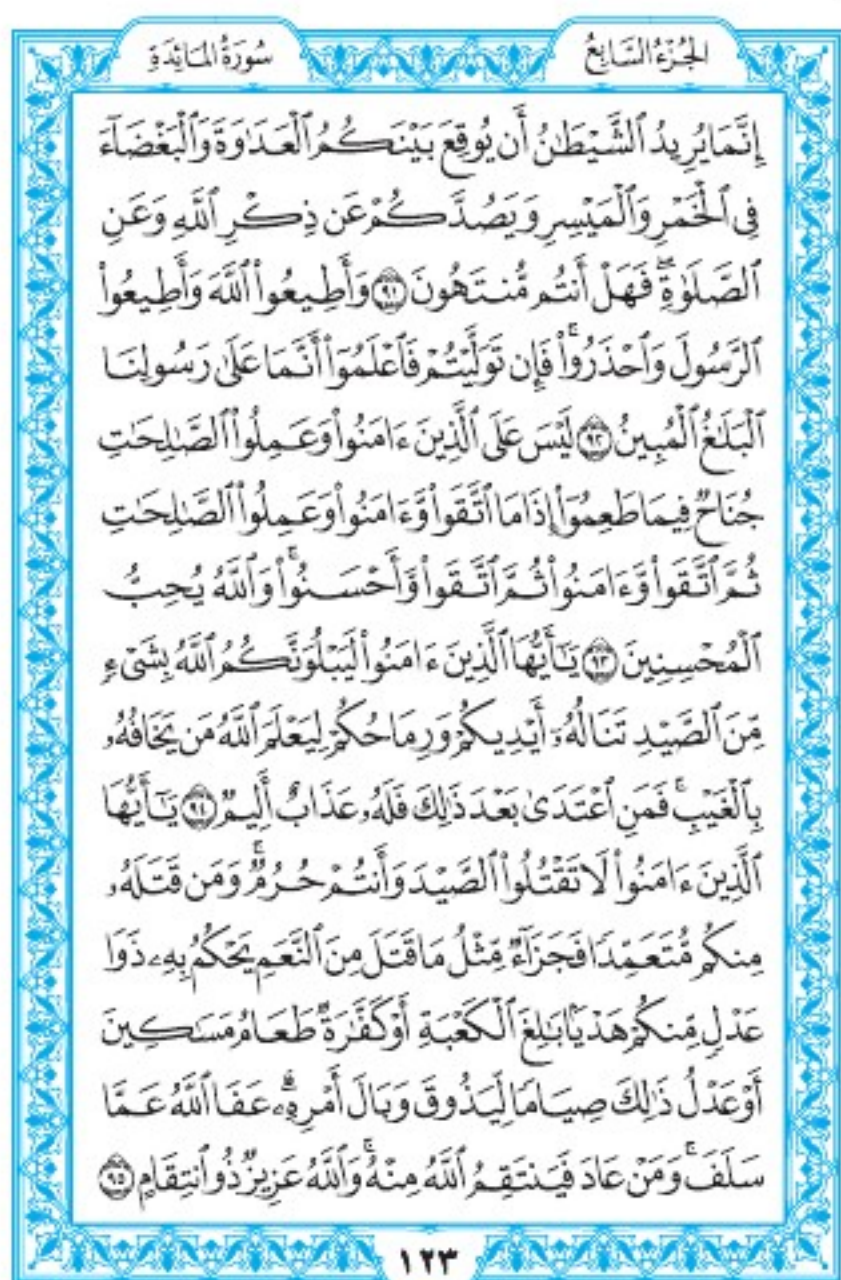 الجُزْءُ السَّابِعُ
سُورَةُ المَائِدَةِ
إِنَّمَا يُرِيدُ ٱلشَّيْطَٰنُ أَن يُوقِعَ بَيْنَكُمُ ٱلْعَدَٰوَةَ وَٱلْبَغْضَآءَ
فِى ٱلْخَمْرِ وَٱلْمَيْسِرِ وَيَصُدَّكُمْ عَن ذِكْرِ ٱللَّهِ وَعَنِ
ٱلصَّلَوٰةِ ۖ فَهَلْ أَنتُم مُّنتَهُونَ ﴿٩١﴾ وَأَطِيعُوا۟ ٱللَّهَ وَأَطِيعُوا۟
ٱلرَّسُولَ وَٱحْذَرُوا۟ ۚ فَإِن تَوَلَّيْتُمْ فَٱعْلَمُوٓا۟ أَنَّمَا عَلَىٰ رَسُولِنَا
ٱلْبَلَٰغُ ٱلْمُبِينُ ﴿٩٢﴾ لَيْسَ عَلَى ٱلَّذِينَ ءَامَنُوا۟ وَعَمِلُوا۟ ٱلصَّٰلِحَٰتِ
جُنَاحٌ فِيمَا طَعِمُوٓا۟ إِذَا مَا ٱتَّقَوا۟ وَّءَامَنُوا۟ وَعَمِلُوا۟ ٱلصَّٰلِحَٰتِ
ثُمَّ ٱتَّقَوا۟ وَّءَامَنُوا۟ ثُمَّ ٱتَّقَوا۟ وَّأَحْسَنُوا۟ ۗ وَٱللَّهُ يُحِبُّ
ٱلْمُحْسِنِينَ ﴿٩٣﴾ يَٰٓأَيُّهَا ٱلَّذِينَ ءَامَنُوا۟ لَيَبْلُوَنَّكُمُ ٱللَّهُ بِشَىْءٍ
مِّنَ ٱلصَّيْدِ تَنَالُهُۥٓ أَيْدِيكُمْ وَرِمَاحُكُمْ لِيَعْلَمَ ٱللَّهُ مَن يَخَافُهُۥ
بِٱلْغَيْبِ ۚ فَمَنِ ٱعْتَدَىٰ بَعْدَ ذَٰلِكَ فَلَهُۥ عَذَابٌ أَلِيمٌ ﴿٩٤﴾ يَٰٓأَيُّهَا
ٱلَّذِينَ ءَامَنُوا۟ لَا تَقْتُلُوا۟ ٱلصَّيْدَ وَأَنتُمْ حُرُمٌ ۚ وَمَن قَتَلَهُۥ
مِنكُم مُّتَعَمِّدًا فَجَزَآءٌ مِّثْلُ مَا قَتَلَ مِنَ ٱلنَّعَمِ يَحْكُمُ بِهِۦ ذَوَا
عَدْلٍ مِّنكُمْ هَدْيًۢا بَٰلِغَ ٱلْكَعْبَةِ أَوْ كَفَّٰرَةٌ طَعَامُ مَسَٰكِينَ
أَوْ عَدْلُ ذَٰلِكَ صِيَامًا لِّيَذُوقَ وَبَالَ أَمْرِهِۦ ۗ عَفَا ٱللَّهُ عَمَّا
سَلَفَ ۚ وَمَنْ عَادَ فَيَنتَقِمُ ٱللَّهُ مِنْهُ ۗ وَٱللَّهُ عَزِيزٌ ذُو ٱنتِقَامٍ ﴿٩٥﴾
١٢٣